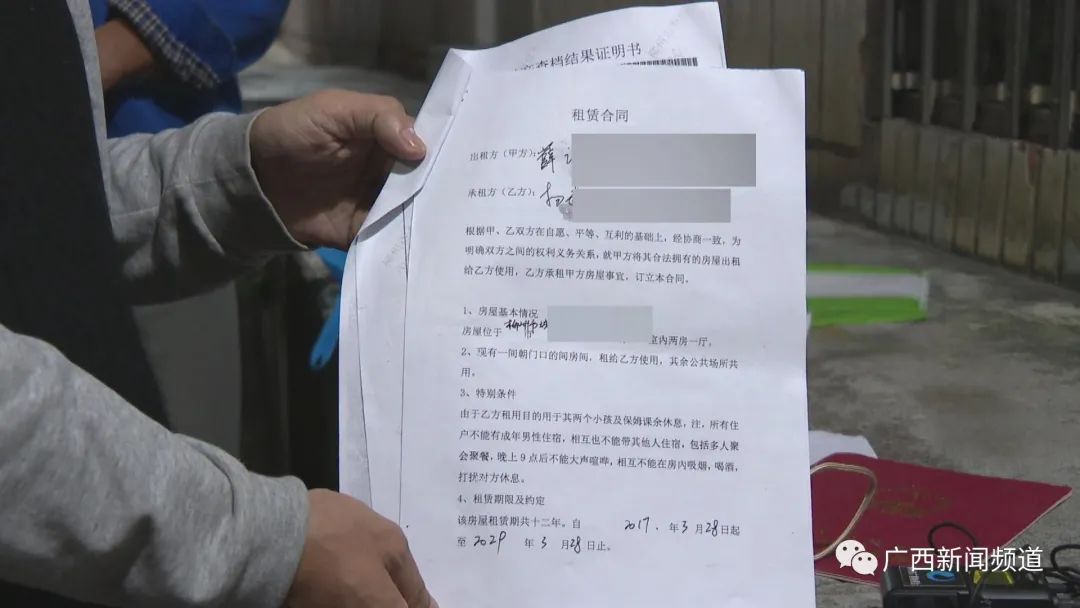 查档结果证明书
租赁合同
出租方（甲方）：薛
承租方（乙方）：
根据甲、乙双方在自愿、平等、互利的基础上，经协商一致，为
明确双方之间的权利义务关系，就甲方将其合法拥有的房屋出租
给乙方使用，乙方承租甲方房屋事宜，订立本合同。
1、房屋基本情况
房屋位于 柳州市 室内两房一厅。
2、现有一间朝门口的间房间，租给乙方使用，其余公共场所共
用。
3、特别条件
由于乙方租用目的用于其两个小孩及保姆课余休息，注，所有住
户不能有成年男性住宿，相互也不能带其他人住宿，包括多人聚
会聚餐，晚上9点后不能大声喧哗，相互不能在房内吸烟，喝酒，
打扰对方休息。
4、租赁期限及约定
该房屋租赁期共十二年。自 2017. 年 3 月 28 日起
至 2029 年 3 月 28 日止。
广西新闻频道